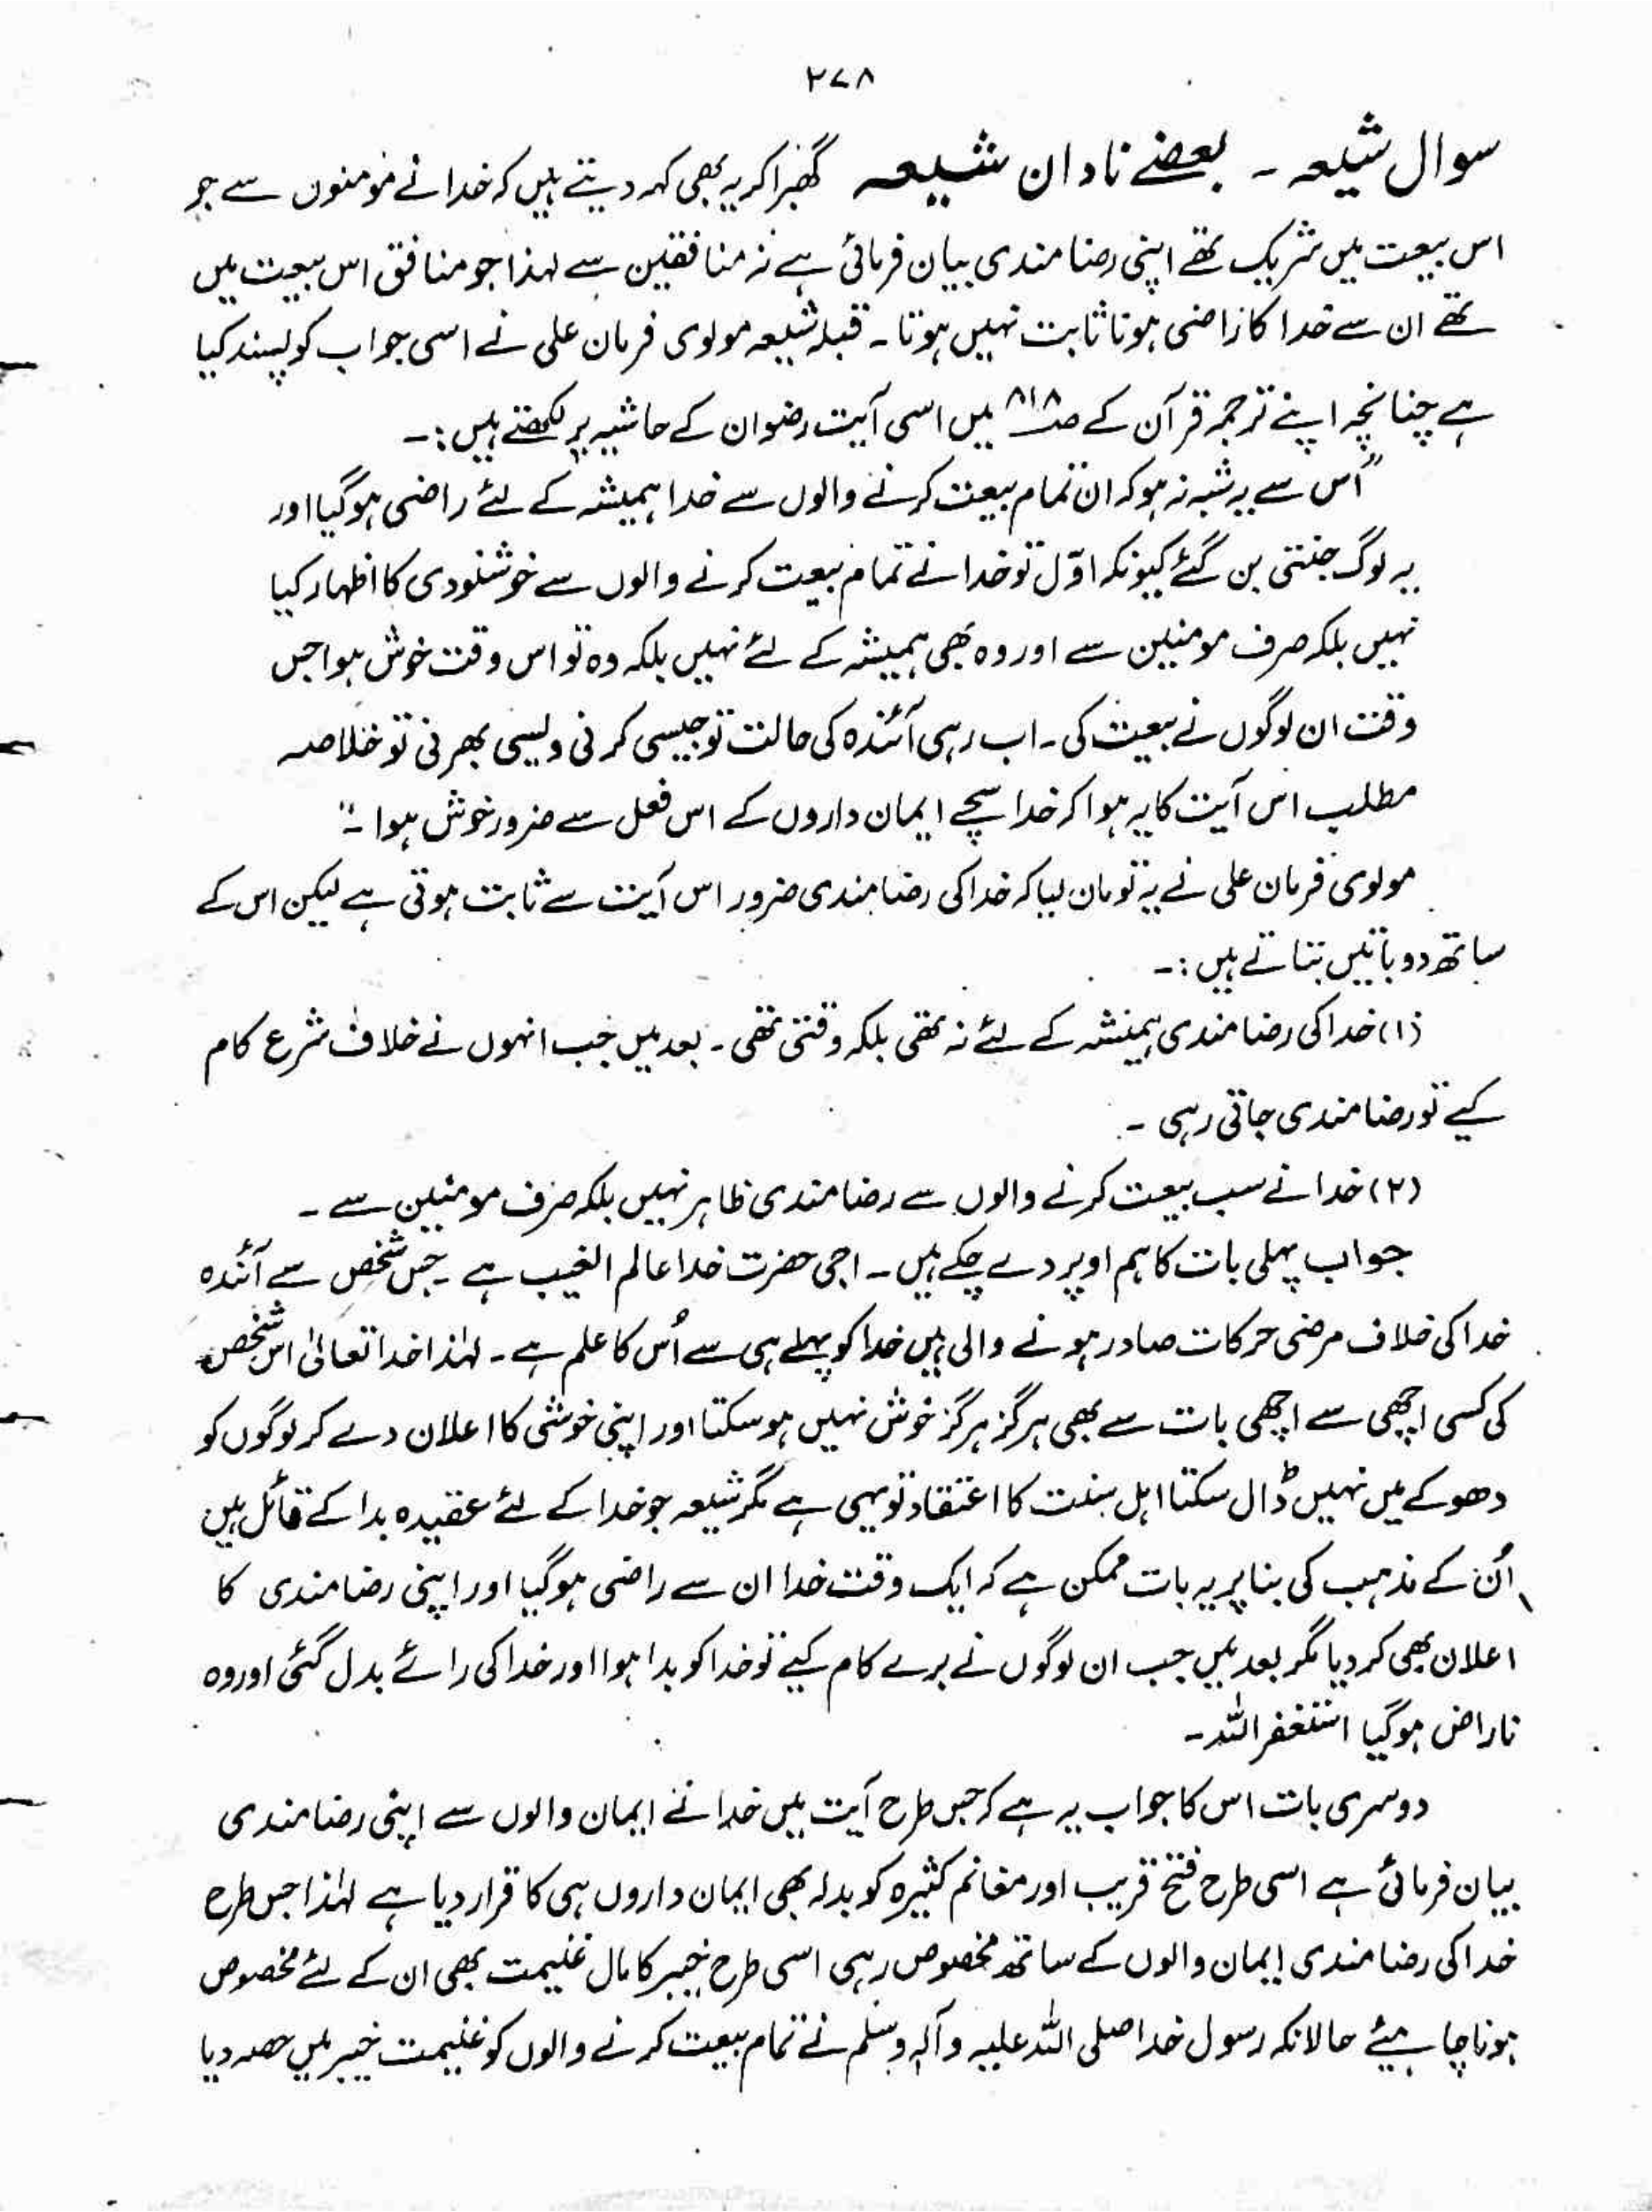 ۲۷۸
سوال شیعہ ۔ بعضے نادان شیعہ گھبرا کر یہ بھی کہہ دیتے ہیں کہ خدا نے مومنوں سے جو
اس بیعت میں شریک تھے اپنی رضا مندی بیان فرمائی ہے نہ منافقین سے لہذا جو منافق اس بیعت میں
تھے ان سے خدا کا راضی ہونا ثابت نہیں ہوتا ۔ قبلہ شیعہ مولوی فرمان علی نے اسی جواب کو پسند کیا
ہے چنانچہ اپنے ترجمہ قرآن کے صہ ۸۱۸ میں اسی آیت رضوان کے حاشیہ پر لکھتے ہیں :۔
"اُس سے یہ شبہ نہ ہو کہ ان تمام بیعت کرنے والوں سے خدا ہمیشہ کے لئے راضی ہو گیا اور
یہ لوگ جنتی بن گئے کیونکہ اوّل تو خدا نے تمام بیعت کرنے والوں سے خوشنودی کا اظہار کیا
نہیں بلکہ صرف مومنین سے اور وہ بھی ہمیشہ کے لئے نہیں بلکہ وہ تو اس وقت خوش ہوا جس
وقت ان لوگوں نے بیعت کی ۔ اب رہی آئندہ کی حالت تو جیسی کرنی ویسی بھرنی تو خلاصہ
مطلب اس آیت کا یہ ہوا کہ خدا سچے ایمان داروں کے اس فعل سے ضرور خوش ہوا ۔"
مولوی فرمان علی نے یہ تو مان لیا کہ خدا کی رضا مندی ضرور اس آیت سے ثابت ہوتی ہے لیکن اس کے
ساتھ دو باتیں بتاتے ہیں :۔
(۱) خدا کی رضا مندی ہمیشہ کے لئے نہ تھی بلکہ وقتی تھی ۔ بعد میں جب انہوں نے خلاف شرع کام
کیے تو رضا مندی جاتی رہی ۔
(۲) خدا نے سب بیعت کرنے والوں سے رضا مندی ظاہر نہیں بلکہ صرف مومنین سے ۔
جواب پہلی بات کا ہم اوپر دے چکے ہیں ۔ اجی حضرت خدا عالم الغیب ہے ۔ جس شخص سے آئندہ
خدا کی خلاف مرضی حرکات صادر ہونے والی ہیں خدا کو پہلے ہی سے اُس کا علم ہے ۔ لہٰذا خدا تعالیٰ اس شخص
کی کسی اچھی سے اچھی بات سے بھی ہرگز ہرگز خوش نہیں ہو سکتا اور اپنی خوشی کا اعلان دے کر لوگوں کو
دھوکے میں نہیں ڈال سکتا اہل سنت کا اعتقاد تو یہی ہے مگر شیعہ جو خدا کے لئے عقیدہ بدا کے قائل ہیں
اُن کے مذہب کی بنا پر یہ بات ممکن ہے کہ ایک وقت خدا ان سے راضی ہو گیا اور اپنی رضا مندی کا
اعلان بھی کر دیا مگر بعد میں جب ان لوگوں نے برے کام کیے تو خدا کو بدا ہوا اور خدا کی رائے بدل گئی اور وہ
ناراض ہو گیا استغفر اللہ ۔
دوسری بات اس کا جواب یہ ہے کہ جس طرح آیت میں خدا نے ایمان والوں سے اپنی رضا مندی
بیان فرمائی ہے اسی طرح فتح قریب اور مغانم کثیرہ کو بدلہ بھی ایمان داروں ہی کا قرار دیا ہے لہٰذا جس طرح
خدا کی رضا مندی ایمان والوں کے ساتھ مخصوص رہی اسی طرح خیبر کا مال غنیمت بھی ان کے لئے مخصوص
ہونا چاہیئے حالانکہ رسول خدا صلی اللہ علیہ وآلہٖ وسلم نے تمام بیعت کرنے والوں کو غنیمت خیبر میں حصہ دیا